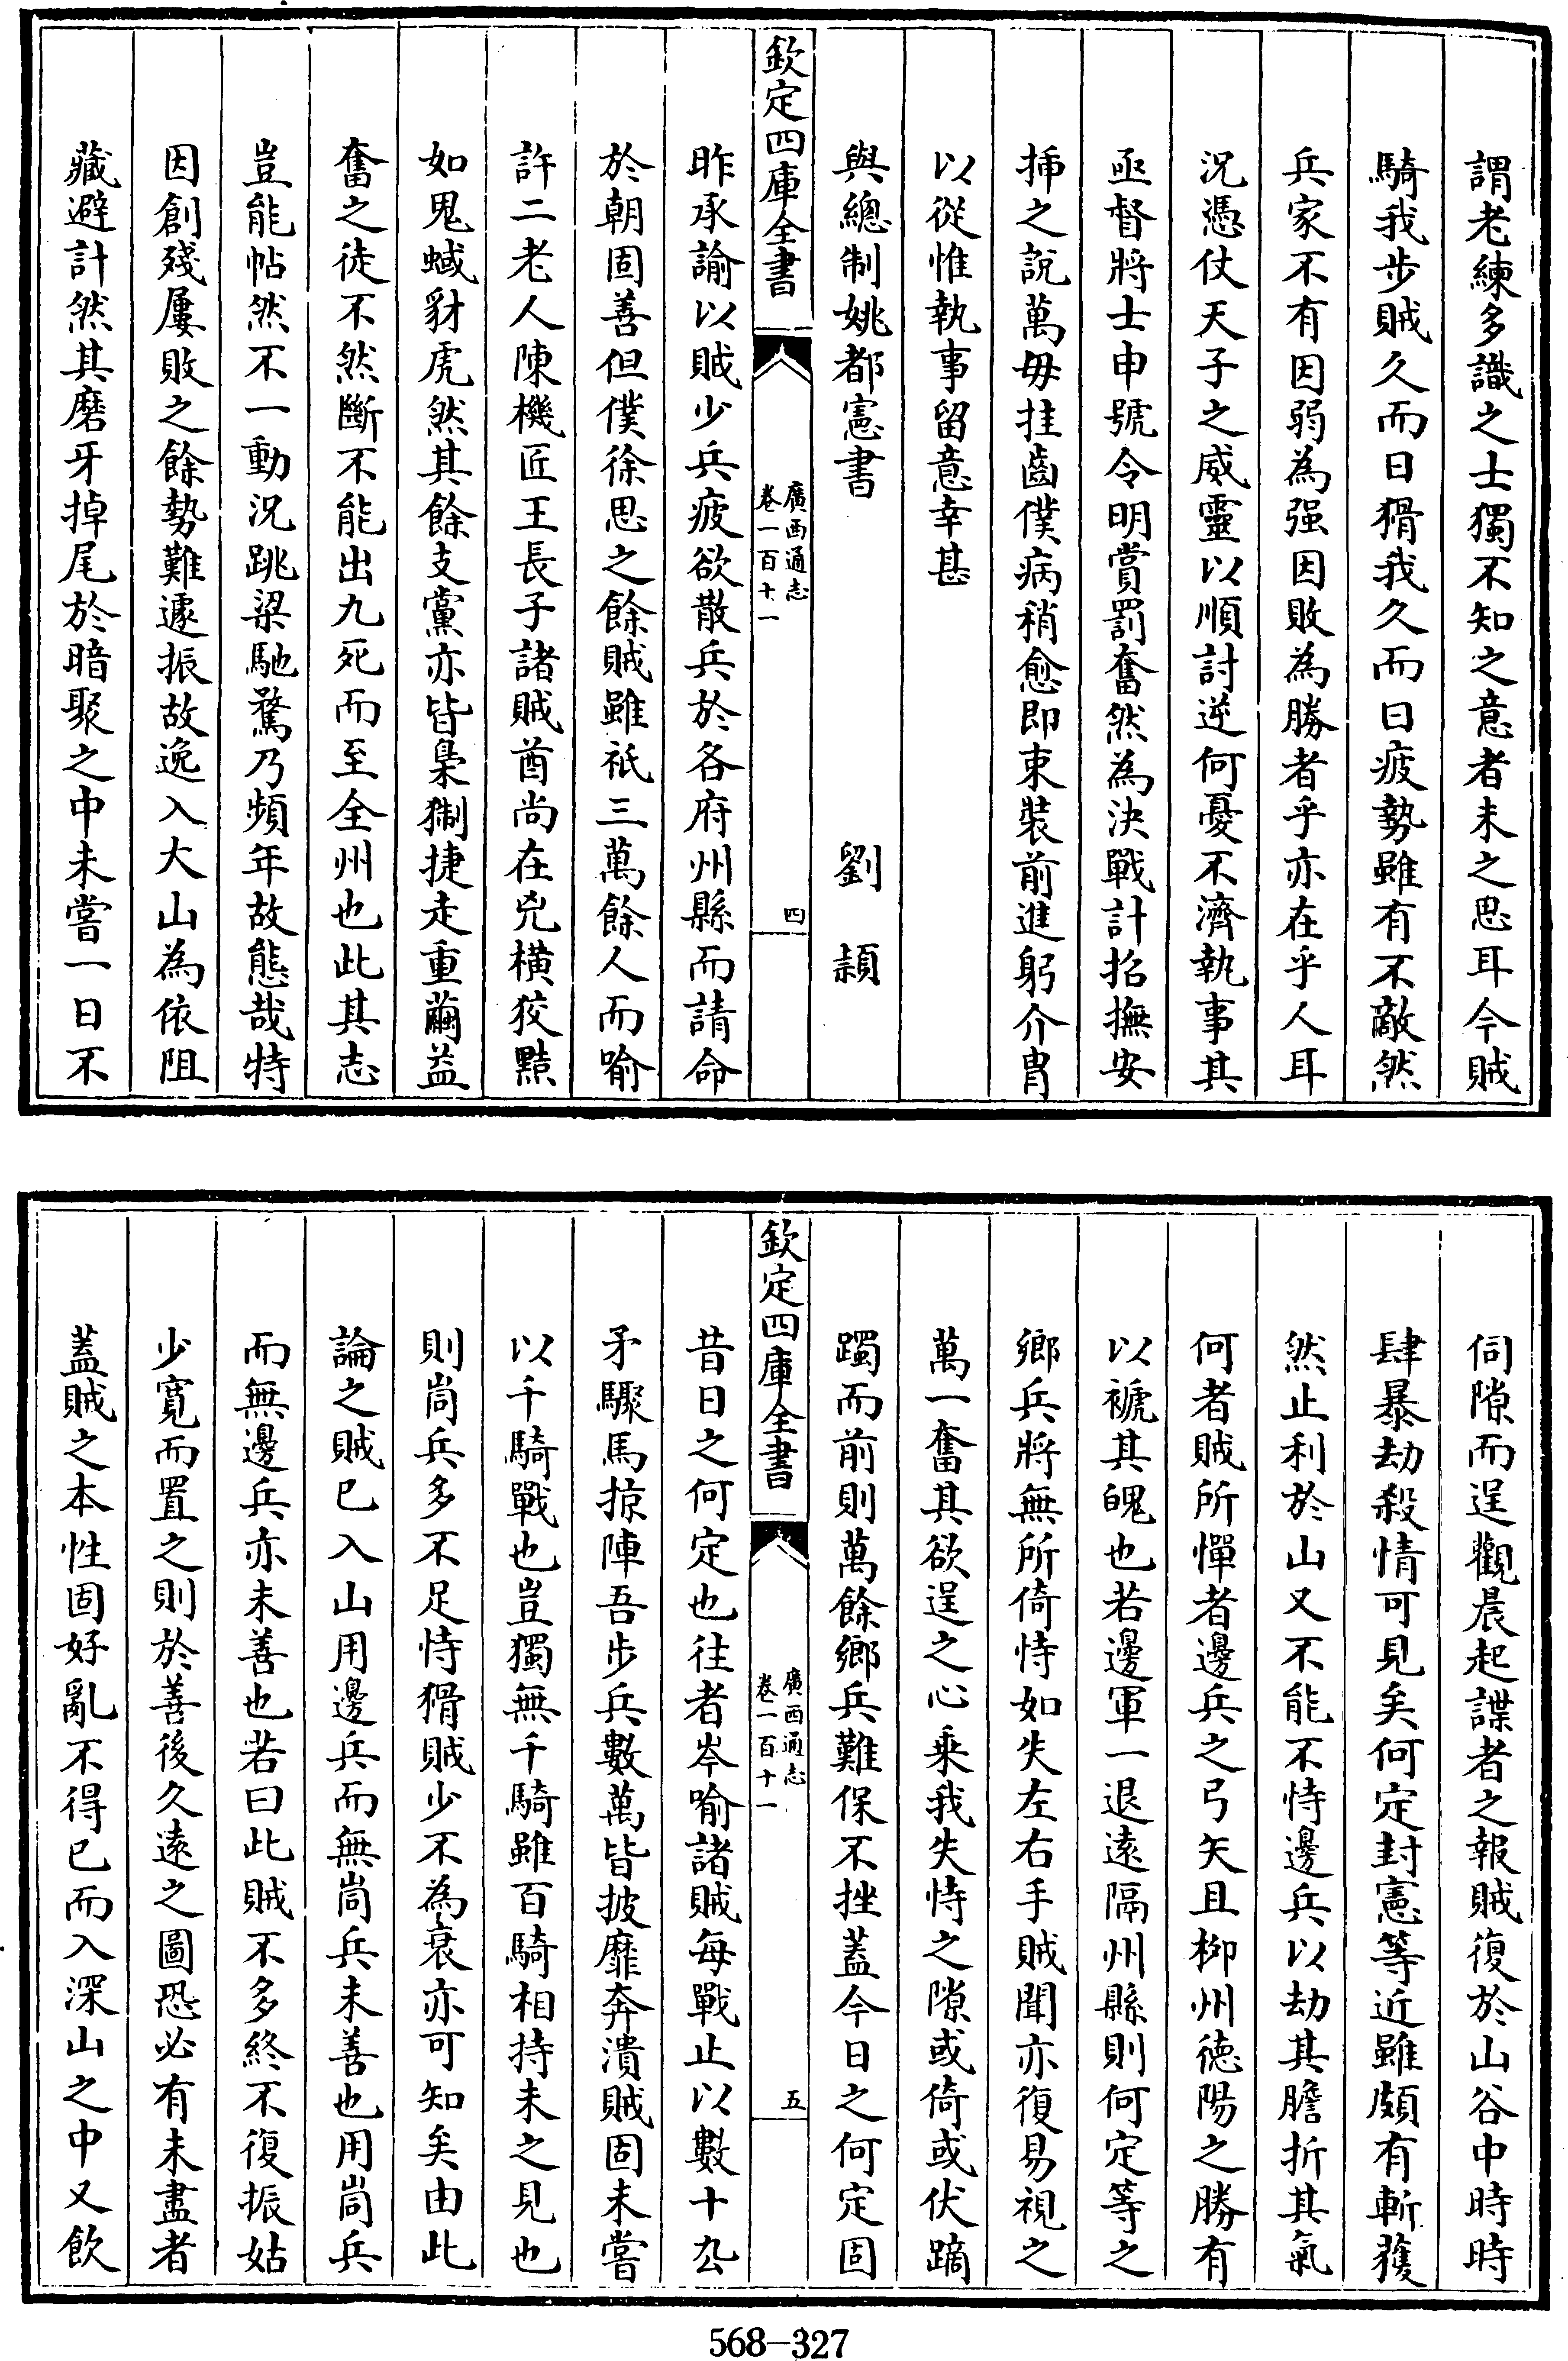 謂老練多識之士獨不知之意者未之思耳今賊
騎我步賊久而日猾我久而日疲勢雖有不敵然
兵家不有因弱為强因敗為勝者乎亦在乎人耳
況憑仗天子之威靈以順討逆何憂不濟執事其
亟督將士申號令明賞罰奮然為決戰計招撫安
揷之說萬毋挂齒僕病稍愈即束裝前進躬介胄
以從惟執事留意幸甚
與總制姚都憲書　劉　潁
欽定四庫全書
廣西通志
卷一百十一
四
昨承諭以賊少兵疲欲散兵於各府州縣而請命
於朝固善但僕徐思之餘賊雖祇三萬餘人而喻
許二老人陳機匠王長子諸賊酋尚在兇橫狡黠
如鬼蜮豺虎然其餘支黨亦皆梟猘捷走重繭益
奮之徒不然斷不能出九死而至全州也此其志
豈能帖然不一動況跳梁馳騖乃頻年故態哉特
因創殘屢敗之餘勢難遽振故逸入大山為依阻
藏避計然其磨牙掉尾於暗聚之中未嘗一日不
伺隙而逞觀晨起諜者之報賊復於山谷中時時
肆暴劫殺情可見矣何定封憲等近雖頗有斬獲
然止利於山又不能不恃邊兵以劫其膽折其氣
何者賊所憚者邊兵之弓矢且柳州德陽之勝有
以褫其魄也若邊軍一退遠隔州縣則何定等之
鄉兵將無所倚恃如失左右手賊聞亦復易視之
萬一奮其欲逞之心乘我失恃之隙或倚或伏蹢
躅而前則萬餘鄉兵難保不挫蓋今日之何定固
欽定四庫全書
廣西通志
卷一百十一
五
昔日之何定也往者岑喻諸賊每戰止以數十厹
矛驟馬掠陣吾步兵數萬皆披靡奔潰賊固未嘗
以千騎戰也豈獨無千騎雖百騎相持未之見也
則峝兵多不足恃猾賊少不為衰亦可知矣由此
論之賊已入山用邊兵而無峝兵未善也用峝兵
而無邊兵亦未善也若曰此賊不多終不復振姑
少寬而置之則於善後久遠之圖恐必有未盡者
蓋賊之本性固好亂不得已而入深山之中又飲
568-327